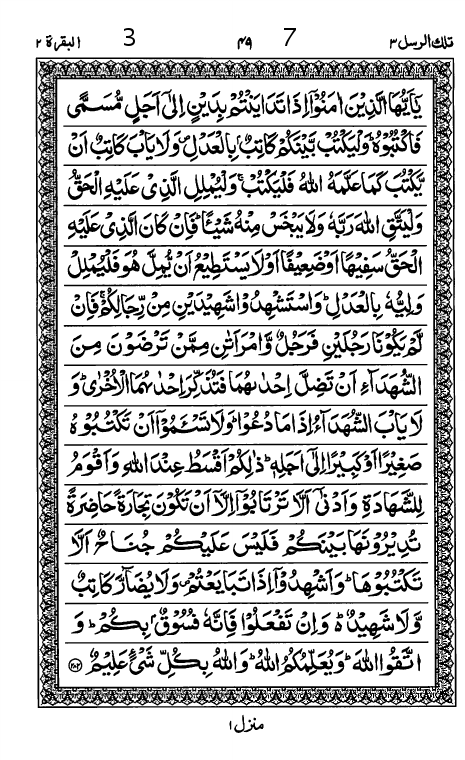 تلك الرسل ٣ 7 ٤٩ 3 البقرة ٢
يٰۤاَيُّهَا الَّذِيْنَ اٰمَنُوْۤا اِذَا تَدَايَنْتُمْ بِدَيْنٍ اِلٰۤى اَجَلٍ مُّسَمًّى
فَاكْتُبُوْهُ ؕ وَلْيَكْتُبْ بَّيْنَكُمْ كَاتِبٌۢ بِالْعَدْلِ ۪ وَلَا يَاْبَ كَاتِبٌ اَنْ
يَّكْتُبَ كَمَا عَلَّمَهُ اللّٰهُ فَلْيَكْتُبْ ۚ وَلْيُمْلِلِ الَّذِيْ عَلَيْهِ الْحَقُّ
وَلْيَتَّقِ اللّٰهَ رَبَّهٗ وَلَا يَبْخَسْ مِنْهُ شَيْـًٔا ؕ فَاِنْ كَانَ الَّذِيْ عَلَيْهِ
الْحَقُّ سَفِيْهًا اَوْ ضَعِيْفًا اَوْ لَا يَسْتَطِيْعُ اَنْ يُّمِلَّ هُوَ فَلْيُمْلِلْ
وَلِيُّهٗ بِالْعَدْلِ ؕ وَاسْتَشْهِدُوْا شَهِيْدَيْنِ مِنْ رِّجَالِكُمْ ۚ فَاِنْ
لَّمْ يَكُوْنَا رَجُلَيْنِ فَرَجُلٌ وَّامْرَاَتٰنِ مِمَّنْ تَرْضَوْنَ مِنَ
الشُّهَدَآءِ اَنْ تَضِلَّ اِحْدٰىهُمَا فَتُذَكِّرَ اِحْدٰىهُمَا الْاُخْرٰى ؕ وَ
لَا يَاْبَ الشُّهَدَآءُ اِذَا مَا دُعُوْا ؕ وَلَا تَسْـَٔمُوْۤا اَنْ تَكْتُبُوْهُ
صَغِيْرًا اَوْ كَبِيْرًا اِلٰۤى اَجَلِهٖ ؕ ذٰلِكُمْ اَقْسَطُ عِنْدَ اللّٰهِ وَاَقْوَمُ
لِلشَّهَادَةِ وَاَدْنٰۤى اَلَّا تَرْتَابُوْۤا اِلَّاۤ اَنْ تَكُوْنَ تِجَارَةً حَاضِرَةً
تُدِيْرُوْنَهَا بَيْنَكُمْ فَلَيْسَ عَلَيْكُمْ جُنَاحٌ اَلَّا
تَكْتُبُوْهَا ؕ وَاَشْهِدُوْۤا اِذَا تَبَايَعْتُمْ ۪ وَلَا يُضَآرَّ كَاتِبٌ
وَّلَا شَهِيْدٌ ؕ۬ وَاِنْ تَفْعَلُوْا فَاِنَّهٗ فُسُوْقٌۢ بِكُمْ ؕ وَ
اتَّقُوا اللّٰهَ ؕ وَيُعَلِّمُكُمُ اللّٰهُ ؕ وَاللّٰهُ بِكُلِّ شَيْءٍ عَلِيْمٌ ﴿۲۸۲﴾
منزل ۱